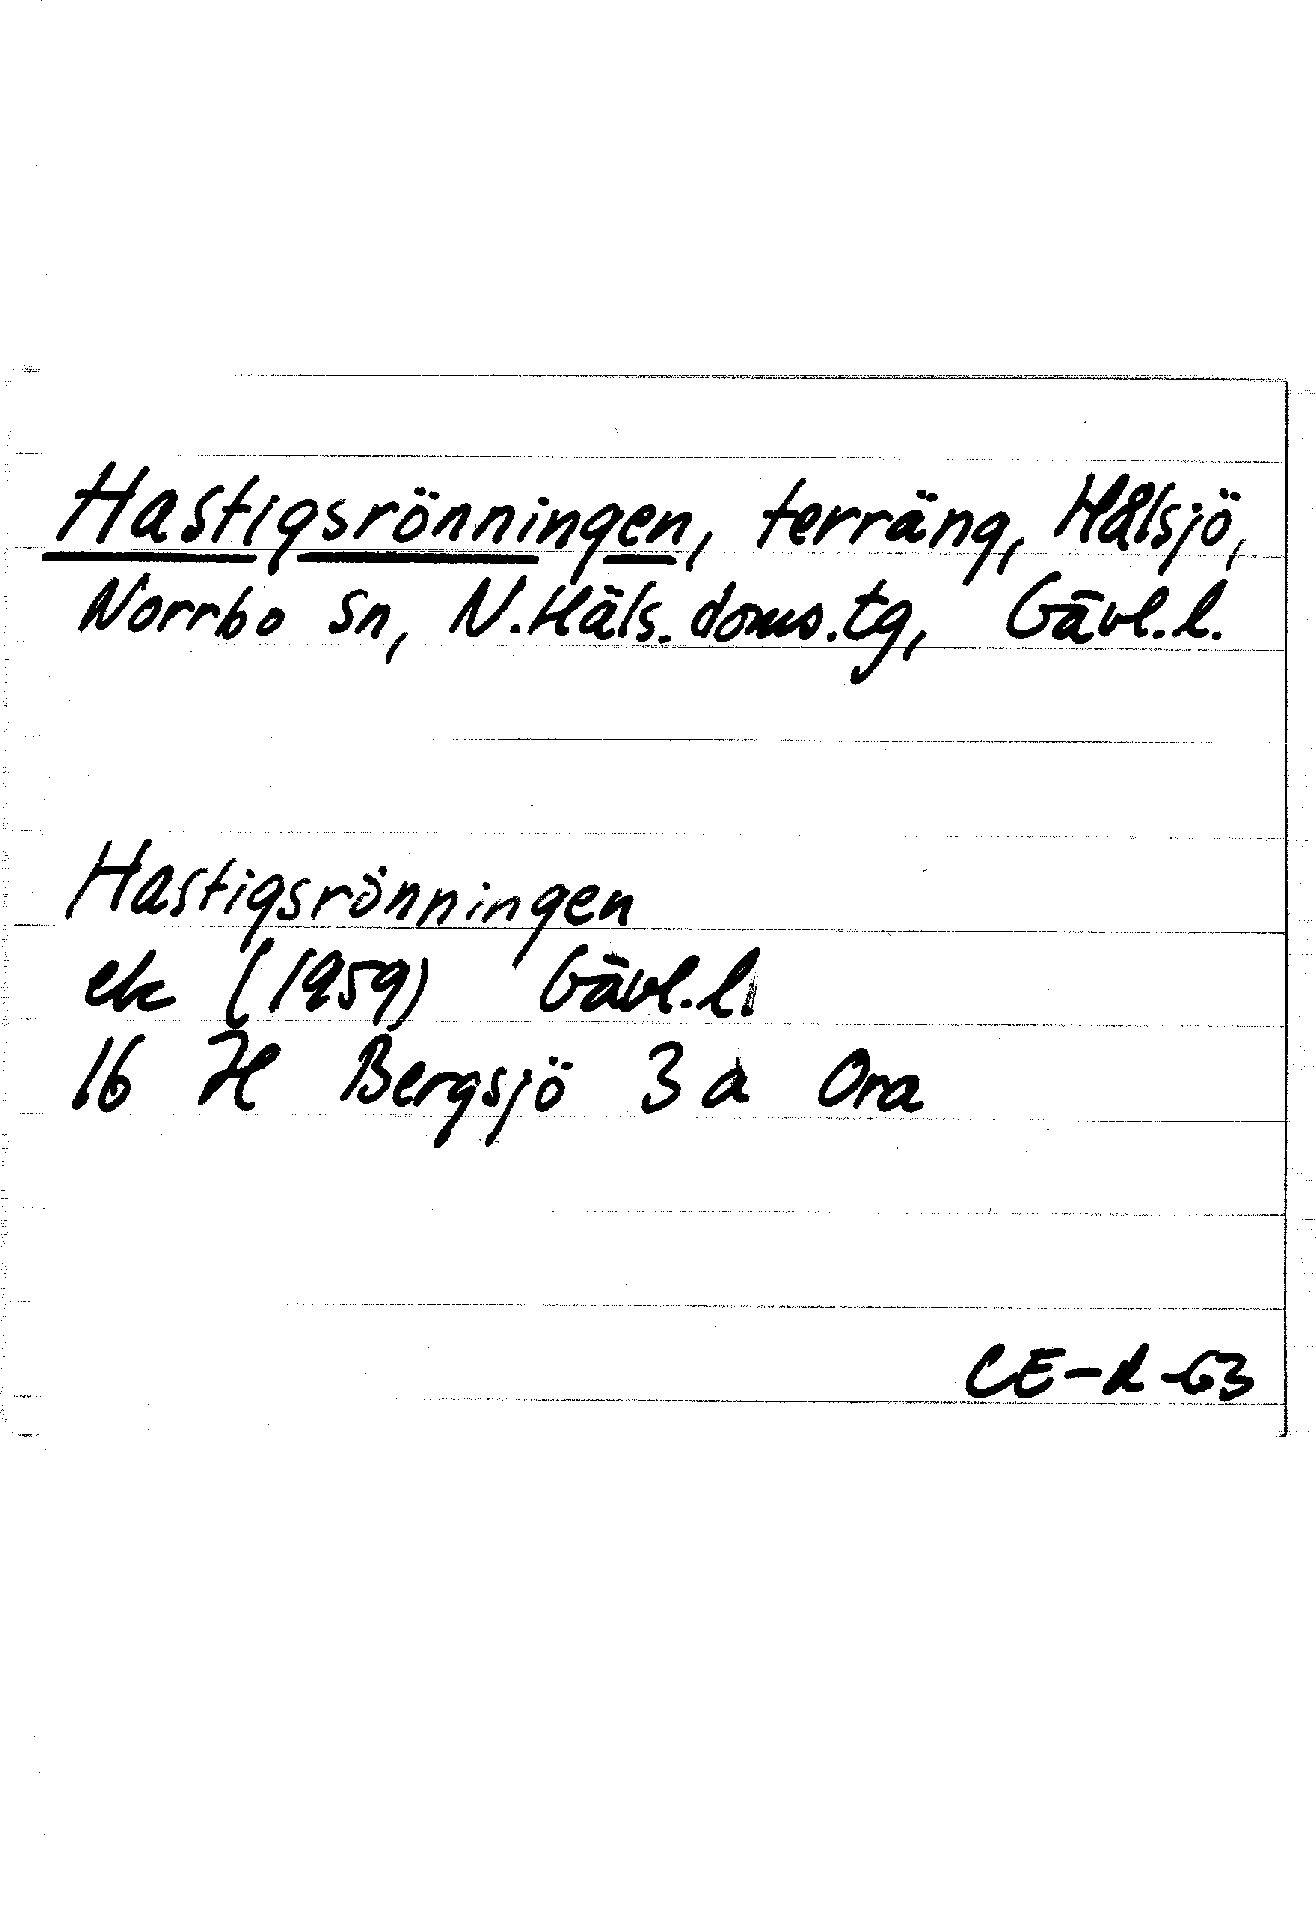 Hastigsrönningen, terräng, Hålsjö,
Norrbo sn, N. Häls. doms. tg, Gävl. l.
Hastigsrönningen
ek (1959) Gävl. l.
16 H Bergsjö 3 a Ora
CE-R-63